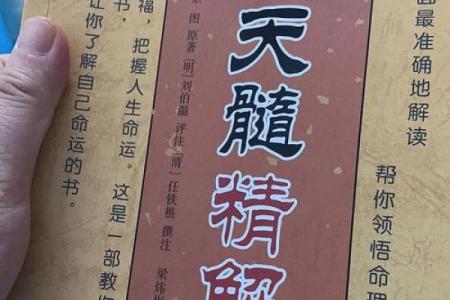 面最准确地解读
帮你领悟命理
天髓精解
图 原著 [明]刘伯温 评注 [清]任铁樵 撰注
梁炜
福，把握人生命运。这是一部教
书，
让你了解自己命运的书。